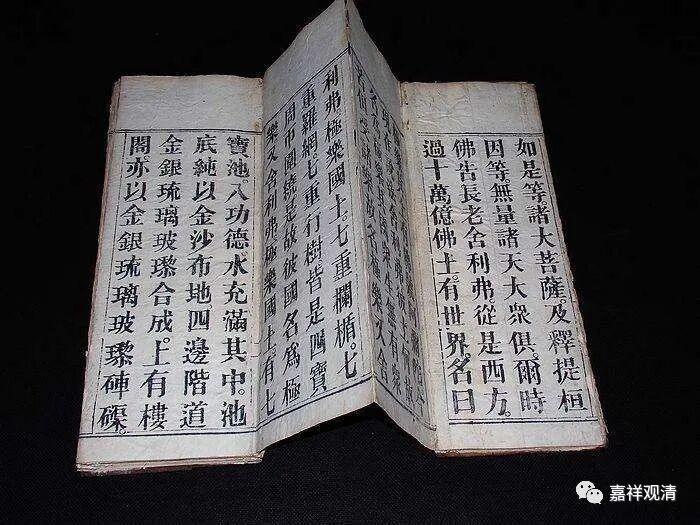 如是等諸大菩薩。及釋提桓
因等無量諸天大衆俱。爾時
佛告長老舍利弗。從是西方。
過十萬億佛土。有世界。名曰
生無有衆
極樂又舍
利弗極樂國土。七重欄楯。七
重羅網。七重行樹皆是四寶
周帀圍繞是故彼國名爲極
樂又舍利弗極樂國土有七
寶池八功德水充滿其中。池
底純以金沙布地四邊階道
金銀琉璃玻瓈合成。上有樓
閣亦以金銀琉璃玻瓈硨磲。
嘉祥观清